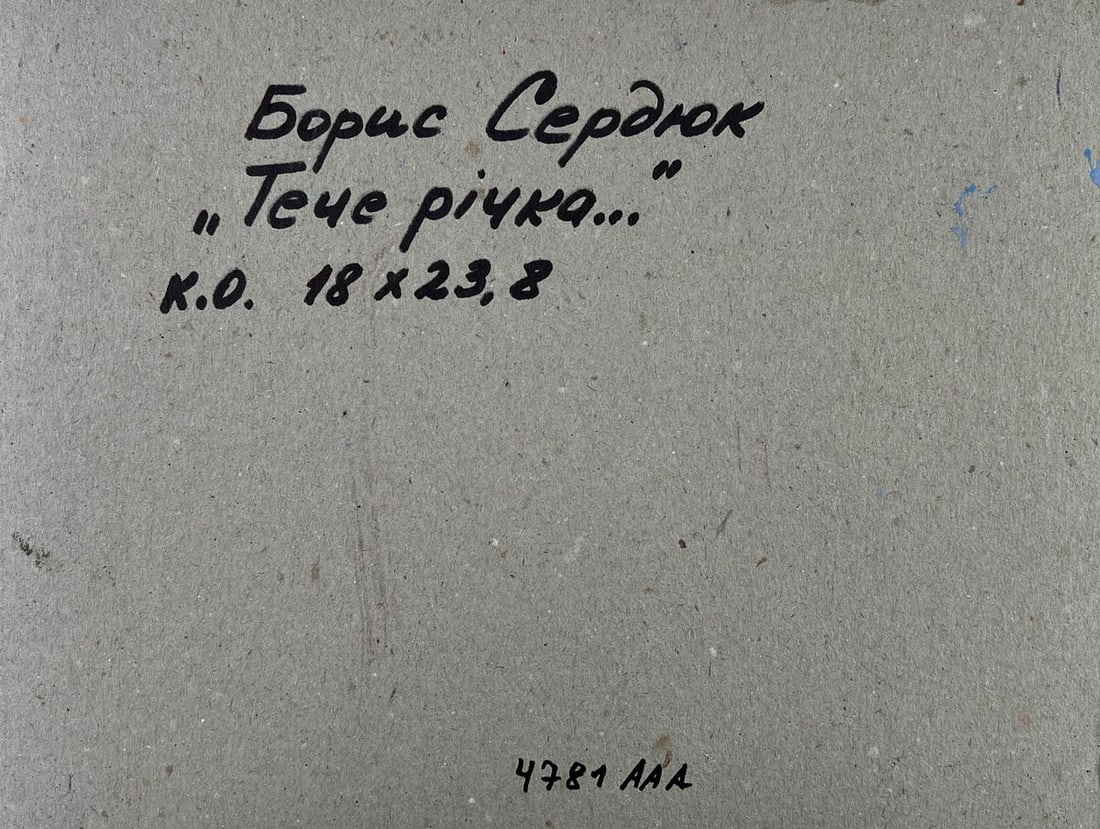 Борис Сердюк
„Тече річка..."
К.О. 18 х 23,8
4781 ААА